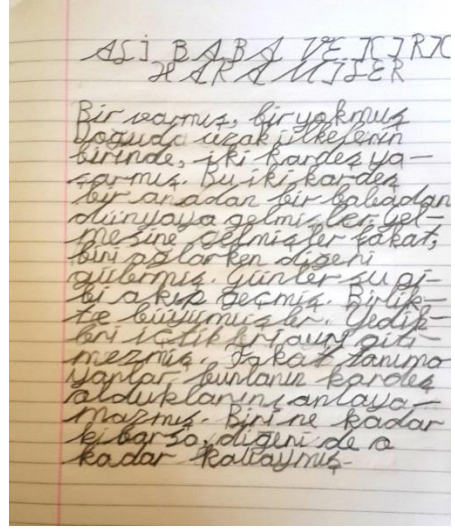 ALİ BABA VE KIRK
HARAMİLER
Bir varmış, bir yokmuş
Doğuda uzak ülkelerin
birinde, iki kardeş ya-
şarmış. Bu iki kardeş
bir anadan bir babadan
dünyaya gelmişler, gel-
mesine gelmişler fakat,
biri ağlarken diğeri
gülermiş. Günler su gi-
bi akıp geçmiş. Birlik-
te büyümüşler. Yedik-
leri içtikleri ayrı gitti
mezmiş. Fakat tanıma
yanlar bunların kardeş
olduklarını anlaya-
mazmış. Biri ne kadar
kibarsa, diğeri de o
kadar kabaymış.